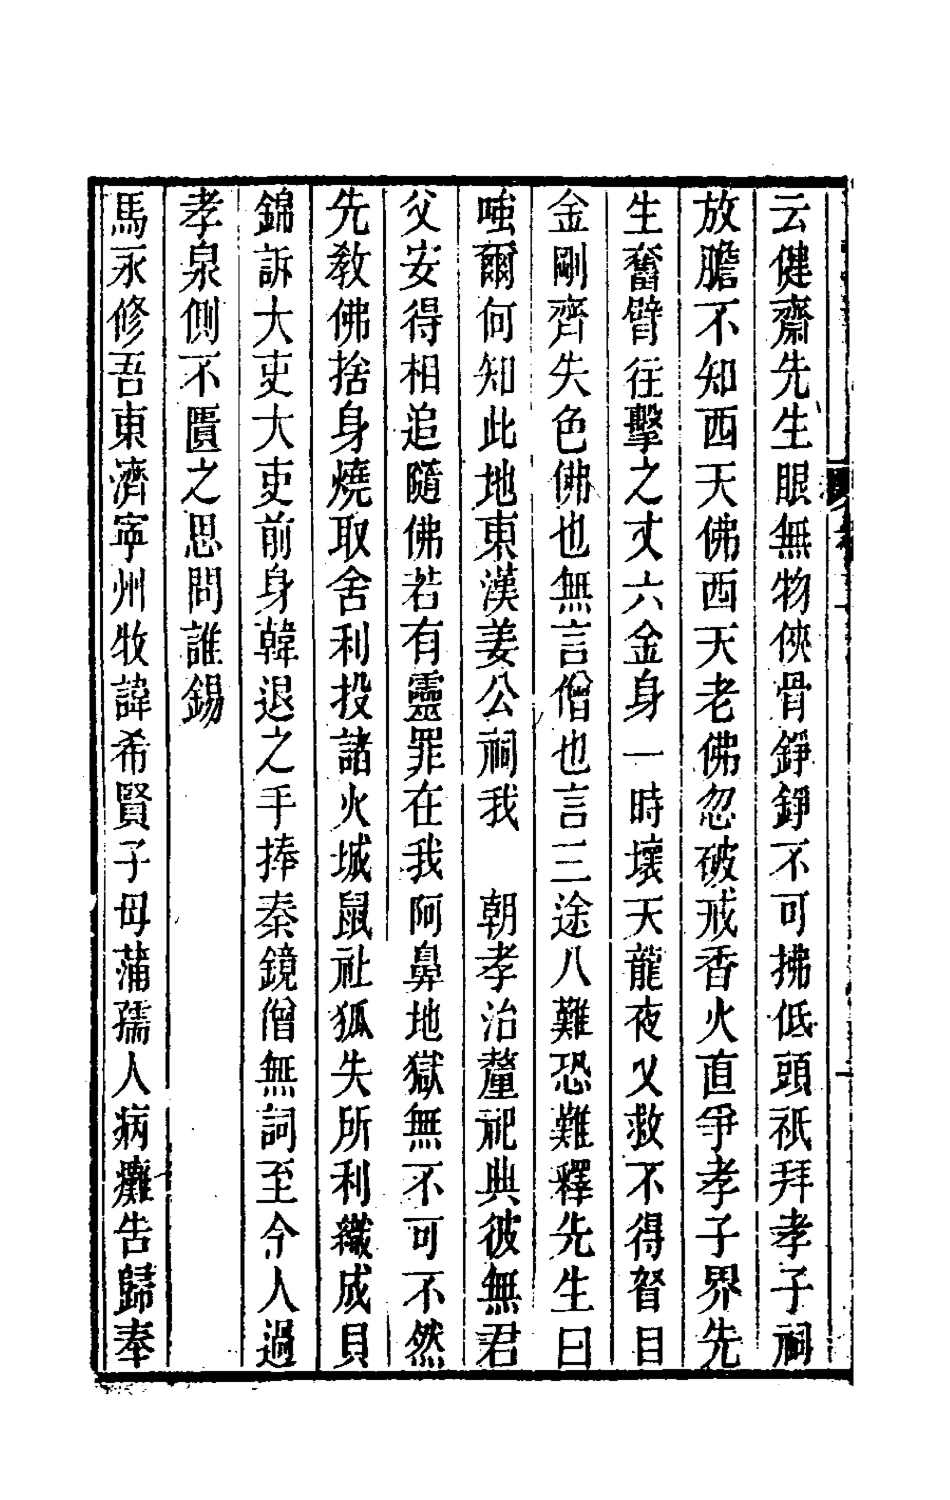 云健齋先生眼無物俠骨錚錚不可拂低頭祇拜孝子祠
放膽不知西天佛西天老佛忽破戒香火直爭孝子界先
生奮臂往擊之丈六金身一時壞天龍夜叉救不得督目
金剛齊失色佛也無言僧也言三途八難恐難釋先生曰
嗤爾何知此地東漢姜公祠我　朝孝治釐祀典彼無君
父安得相追隨佛若有靈罪在我阿鼻地獄無不可不然
先教佛捨身燒取舍利投諸火城鼠社狐失所利織成貝
錦訴大吏大吏前身韓退之手捧秦鏡僧無詞至今人過
孝泉側不匱之思問誰錫
馬永修吾東濟寧州牧諱希賢子母蒲孺人病癱告歸奉